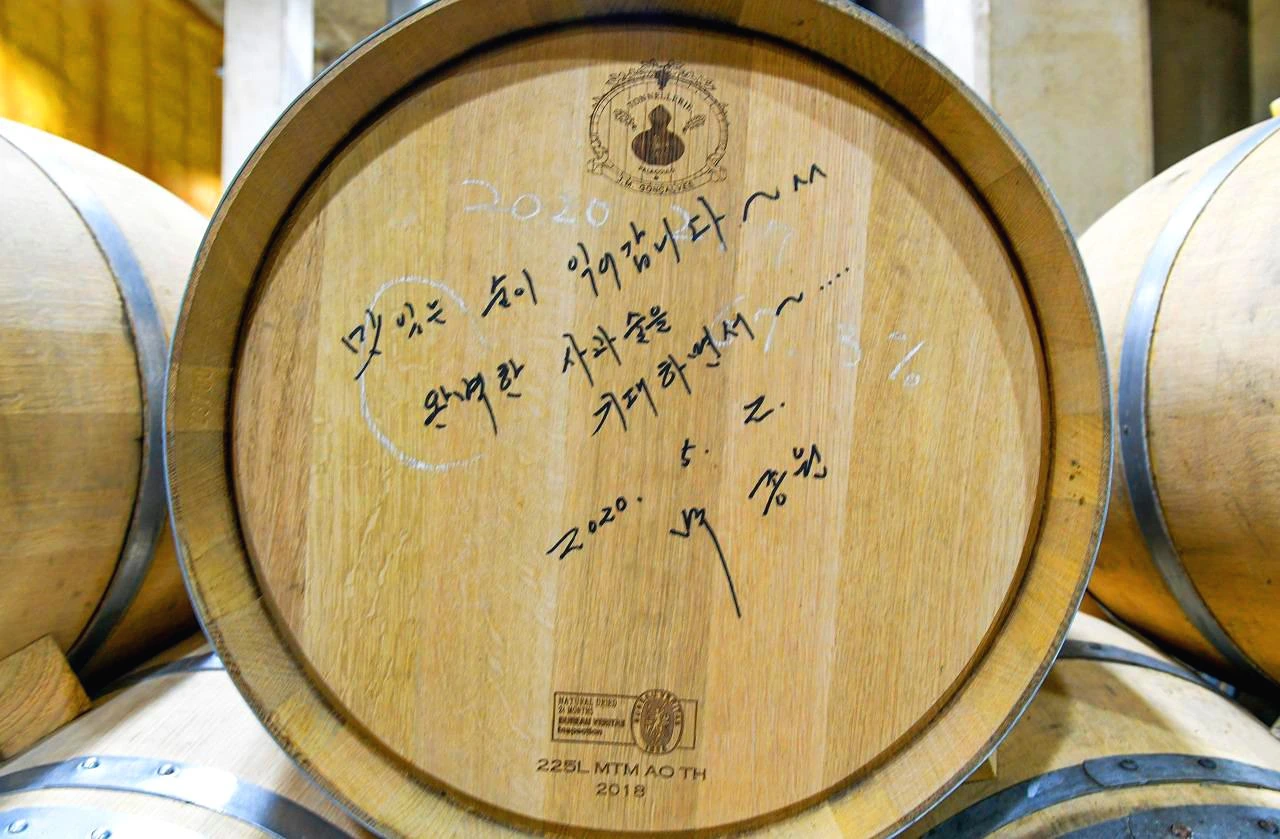 TONNELLERIE
J.M. GONÇALVES
2020
맛있는 술이 익어갑니다~^^
완벽한 사과술을
기대하면서~....
3%
2020. 5. 2.
백종원
NATURAL DRIED
BUREAU VERITAS
Inspection
225L MTM AO TH
2018